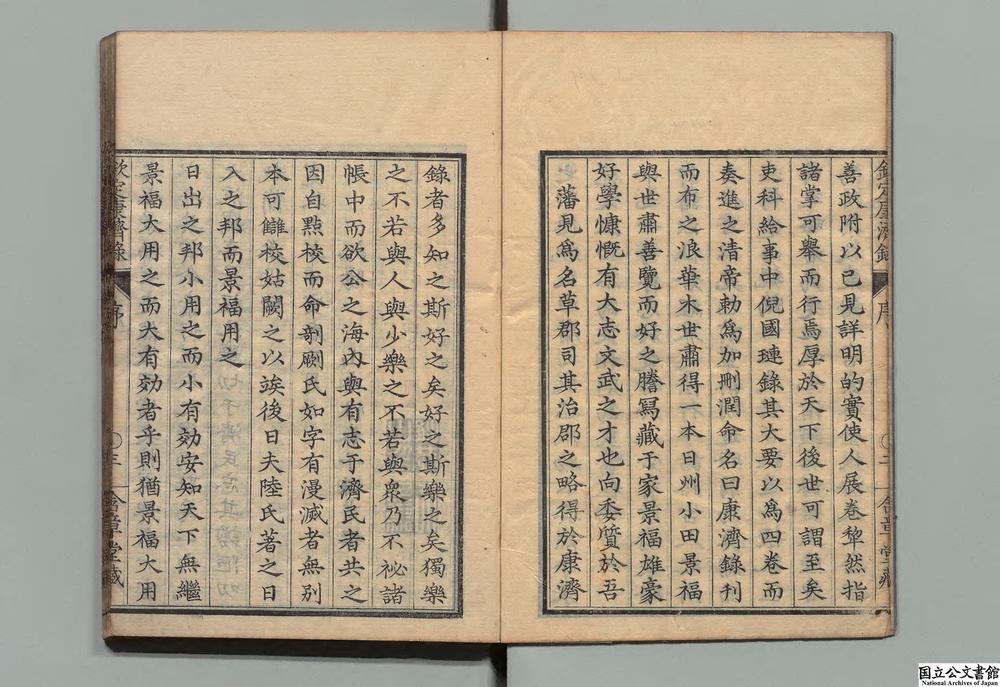 善政附以已見詳明的實使人展卷犂然指
諸掌可舉而行焉厚於天下後世可謂至矣
吏科給事中倪國璉錄其大要以爲四卷而
奏進之清帝勅爲加刪潤命名曰康濟錄刊
而布之浪華木世肅得一本日州小田景福
與世肅善覽而好之謄寫藏于家景福雄豪
好學慷慨有大志文武之才也向委質於吾
藩見爲名草郡司其治郡之略得於康濟
欽定康濟錄
序
〇三
含章堂藏
錄者多知之斯好之矣好之斯樂之矣獨樂
之不若與人與少樂之不若與衆乃不祕諸
帳中而欲公之海內與有志于濟民者共之
因自點校而命剞劂氏如字有漫滅者無別
本可讎校姑闕之以竢後日夫陸氏著之日
入之邦而景福用之
日出之邦小用之而小有効安知天下無繼
景福大用之而大有効者乎則猶景福大用
国立公文書館
National Archives of Japan